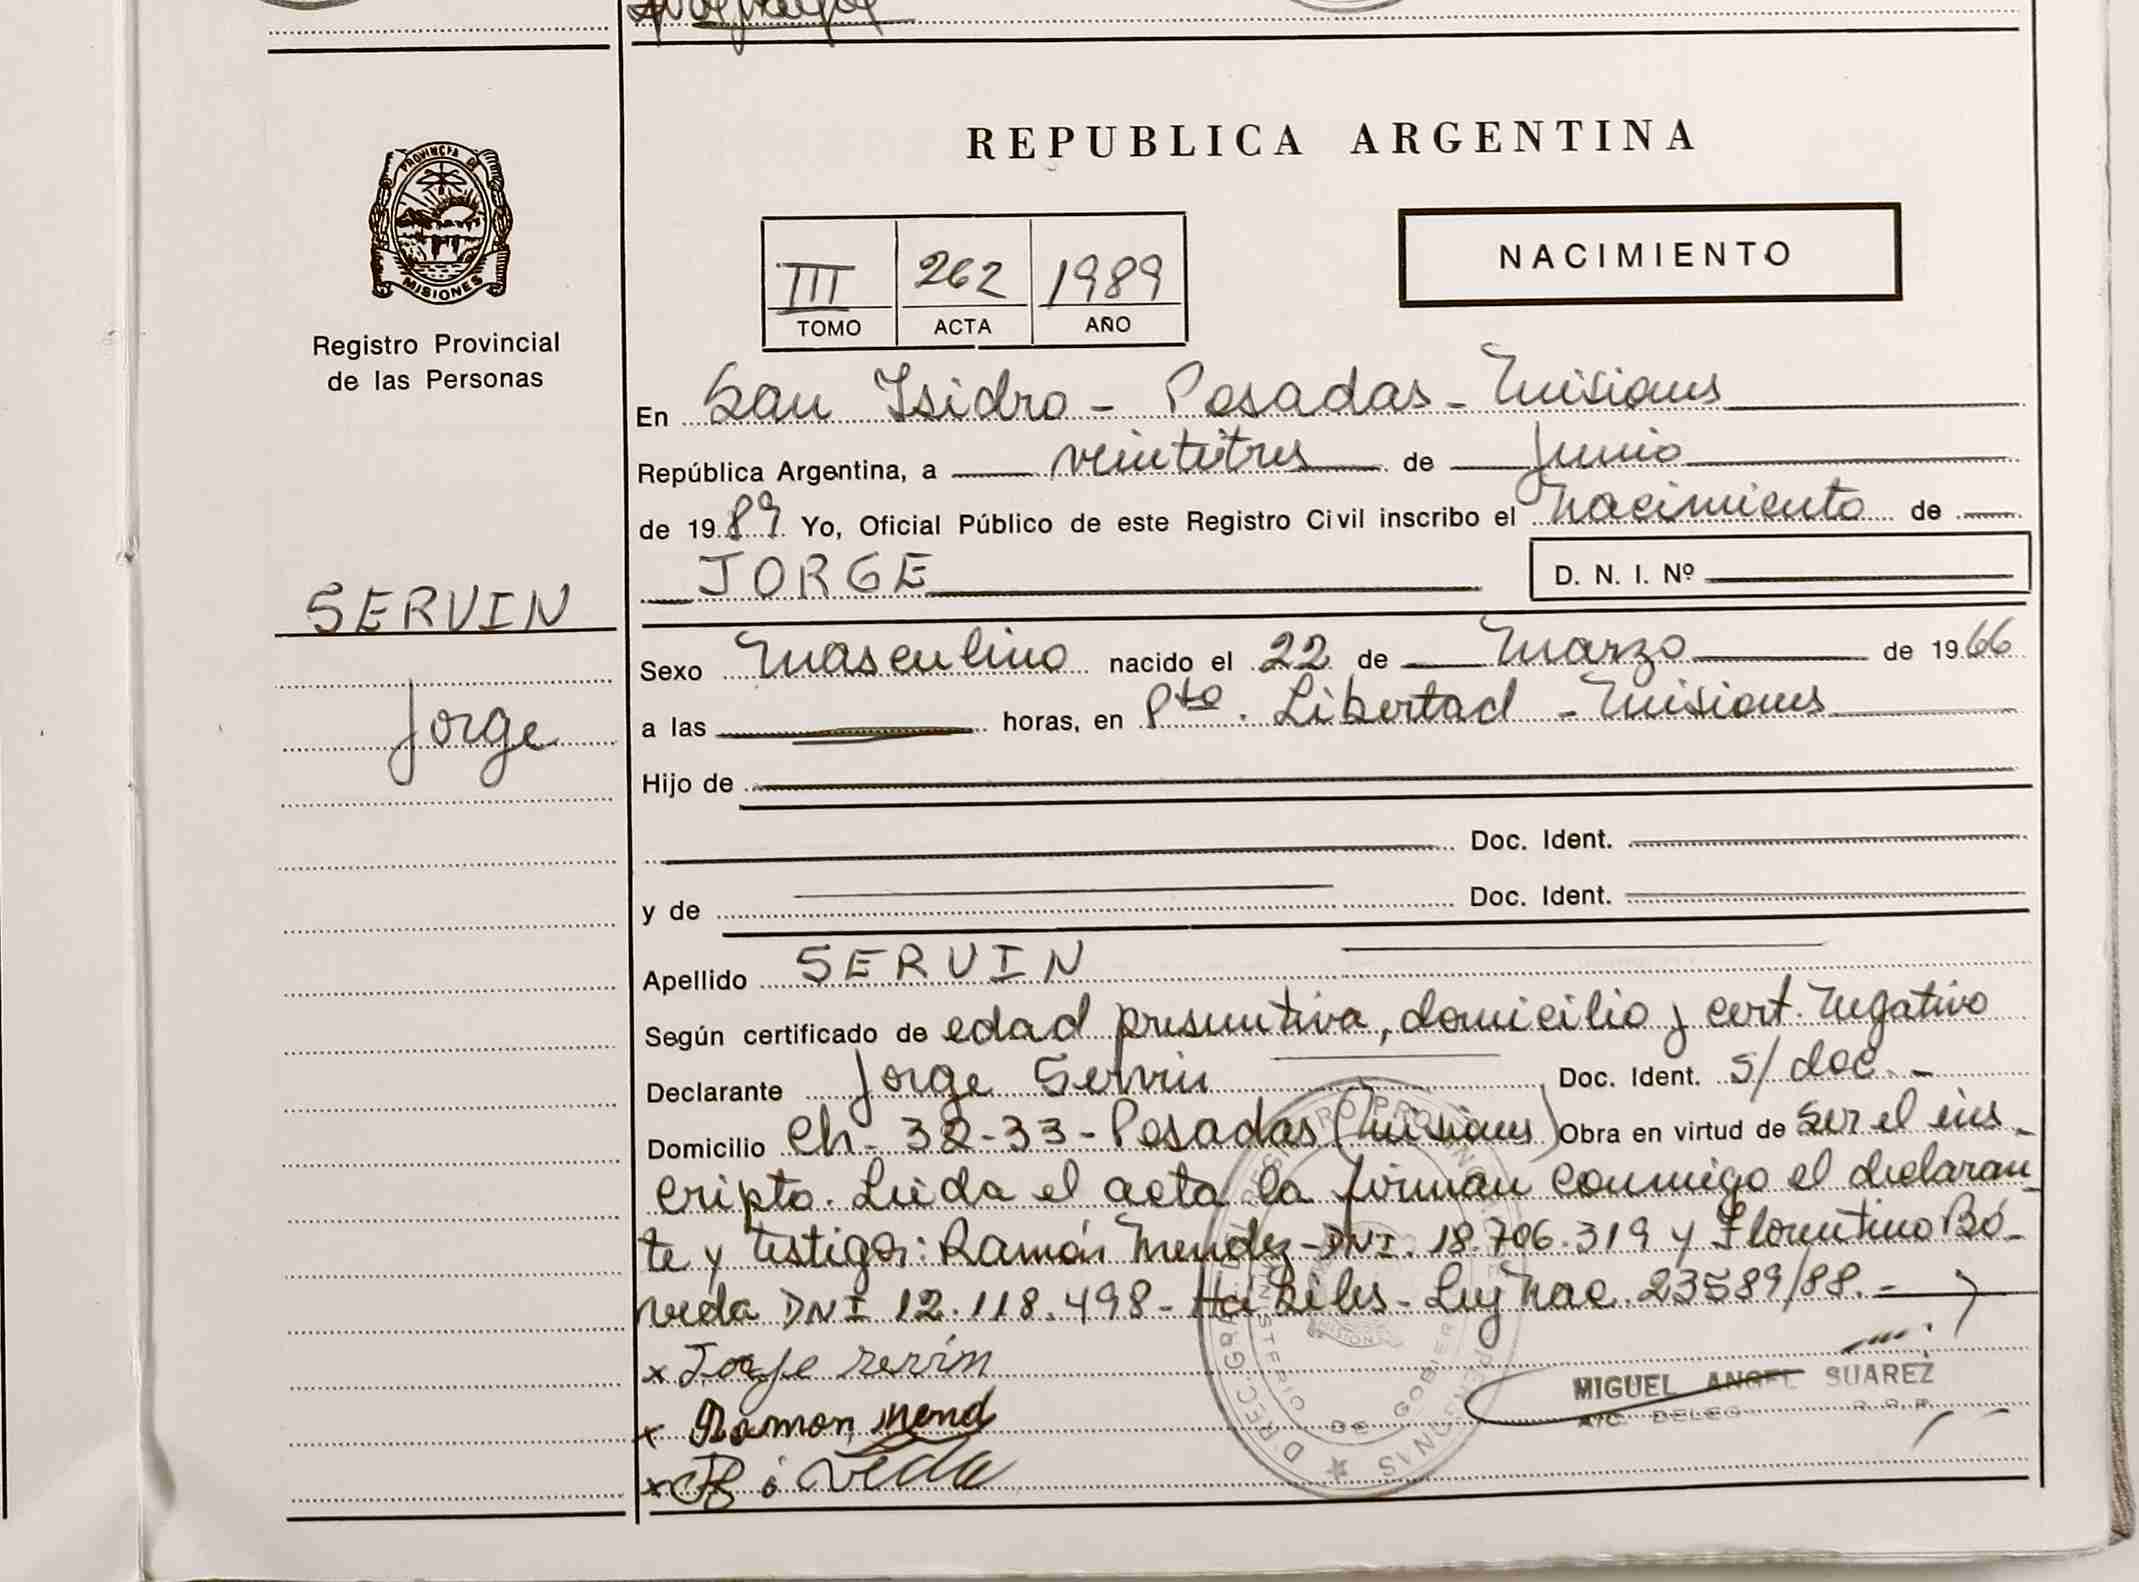 PROVINCIA DE
MISIONES
Registro Provincial
de las Personas
SERVIN
Jorge
REPUBLICA ARGENTINA
NACIMIENTO
III 262 1989
TOMO ACTA AÑO
En San Isidro - Posadas - Misiones
República Argentina, a veintitres de Junio
de 1989 Yo, Oficial Público de este Registro Civil inscribo el Nacimiento de
JORGE D. N. I. Nº
Sexo Masculino nacido el 22 de Marzo de 1966
a las horas, en Pto. Libertad - Misiones
Hijo de
Doc. Ident.
y de Doc. Ident.
Apellido SERVIN
Según certificado de edad presuntiva, domicilio y cert. Negativo
Declarante Jorge Servin Doc. Ident. s/ doc. -
Domicilio Ch - 32-33 - Posadas (Misiones) Obra en virtud de ser el ins-
cripto. Leida el acta la firman conmigo el declaran-
te y testigos: Ramón Mendez - DNI. 18.706.319 y Florentino Bó-
veda DNI 12.118.498 - Hábiles - Ley Nac. 23589/88. -
x Jorje servin
x Ramon mend
x Bóveda
MIGUEL ANGEL SUAREZ
A/C. DELEG. R. P.